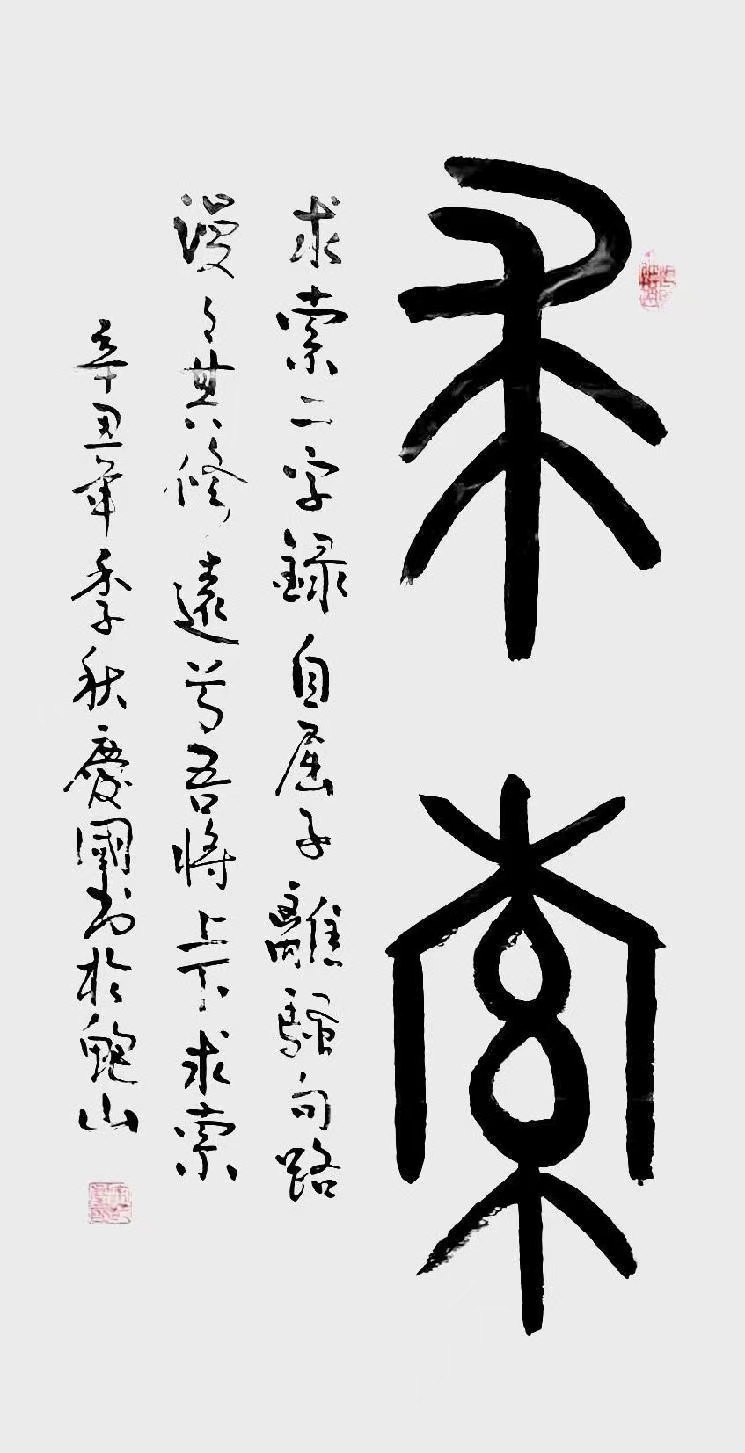 求索
求索二字録自屈子離騷句路
漫々其修遠兮吾將上下求索
辛丑年季秋慶國書於鮑山